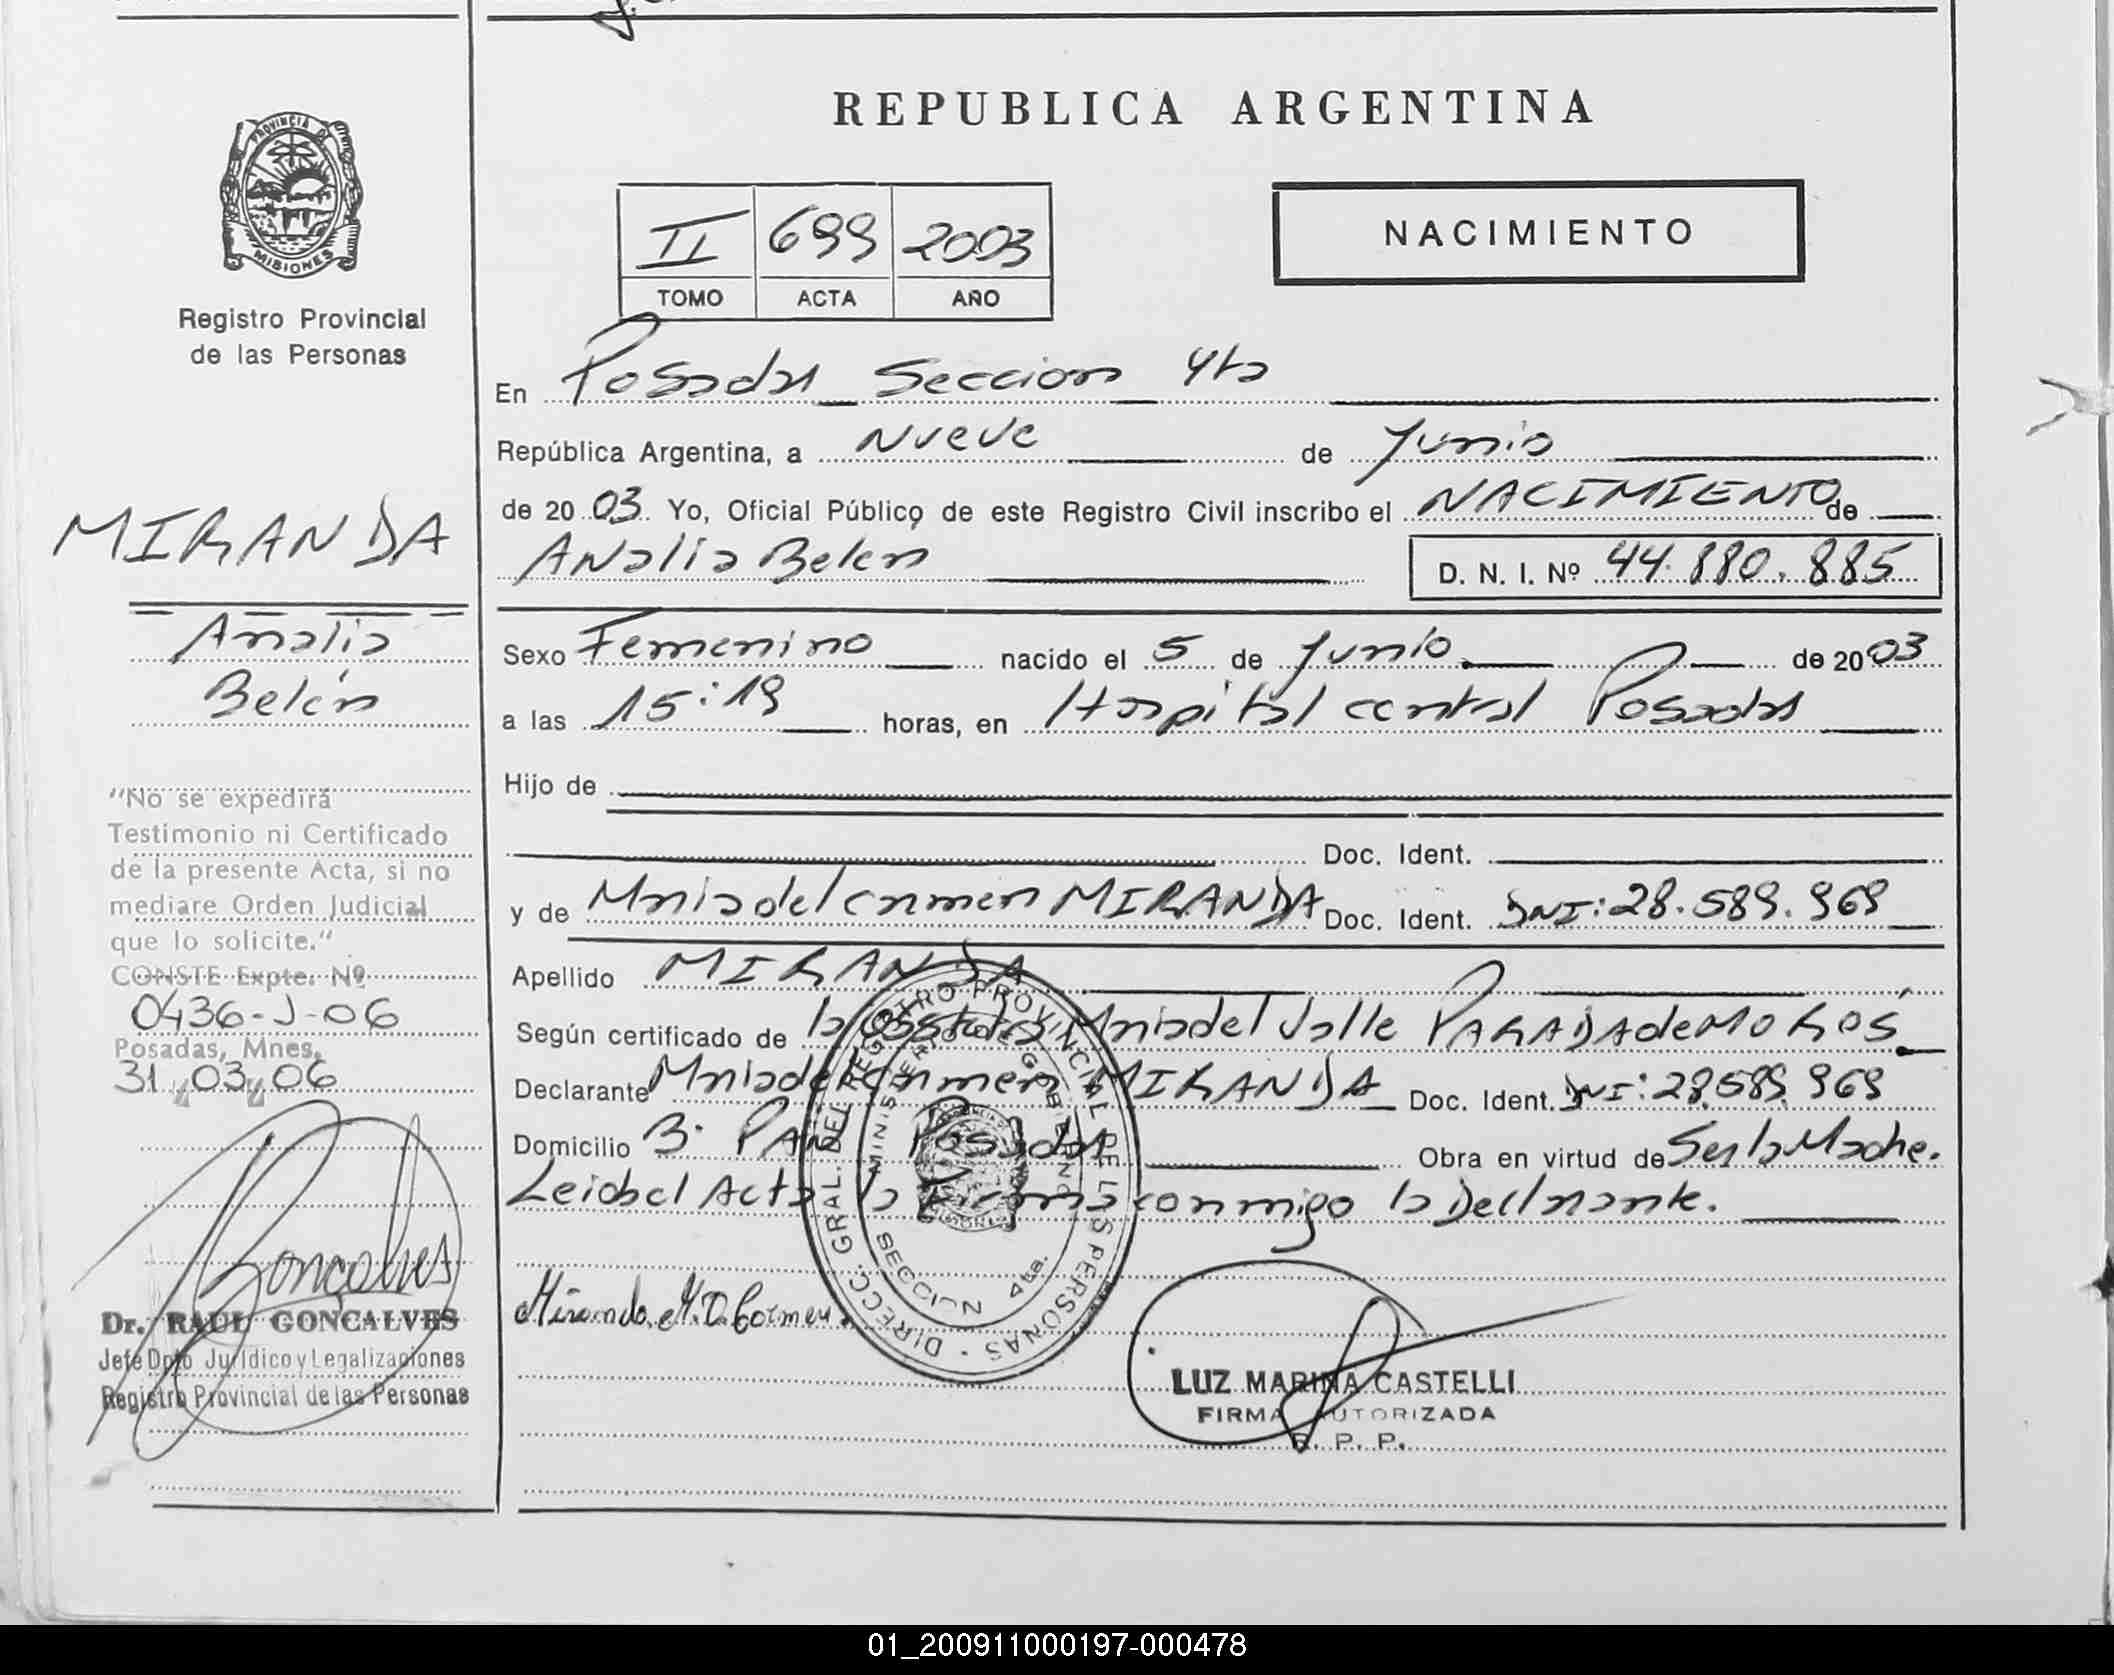 REPUBLICA ARGENTINA
PROVINCIA DE
MISIONES
Registro Provincial
de las Personas
II 699 2003
TOMO ACTA AÑO
NACIMIENTO
En Posadas Seccion 4ta
República Argentina, a Nueve de Junio
de 2003 Yo, Oficial Público de este Registro Civil inscribo el NACIMIENTO de
Analia Belen D. N. I. Nº 44.880.885
Sexo Femenino nacido el 5 de Junio de 2003
a las 15:19 horas, en Hospital central Posadas
Hijo de
Doc. Ident.
y de Maria del Carmen MIRANDA Doc. Ident. DNI: 28.589.969
Apellido MIRANDA
Según certificado de la Maria del Valle PARADA de MOROS
Declarante Maria del Carmen MIRANDA Doc. Ident. DNI: 28.589.969
Domicilio B. Posadas Obra en virtud de Ser la Madre.
Leida el Acta la Firma conmigo la Declarante.
Miranda. M. D. Carmen.
DIRECC. GRAL. DEL REGISTRO PROVINCIAL DE LAS PERSONAS
MINISTERIO DE GOBIERNO
SECCION 4ta.
LUZ MARINA CASTELLI
FIRMA AUTORIZADA
R. P. P.
MIRANDA
Analia
Belén
"No se expedirá
Testimonio ni Certificado
de la presente Acta, si no
mediare Orden Judicial
que lo solicite."
CONSTE Expte. Nº
0436-J-06
Posadas, Mnes.
31 03 06
Gonçalves
Dr. RAUL GONÇALVES
Jefe Dpto Jurídico y Legalizaciones
Registro Provincial de las Personas
01_200911000197-000478